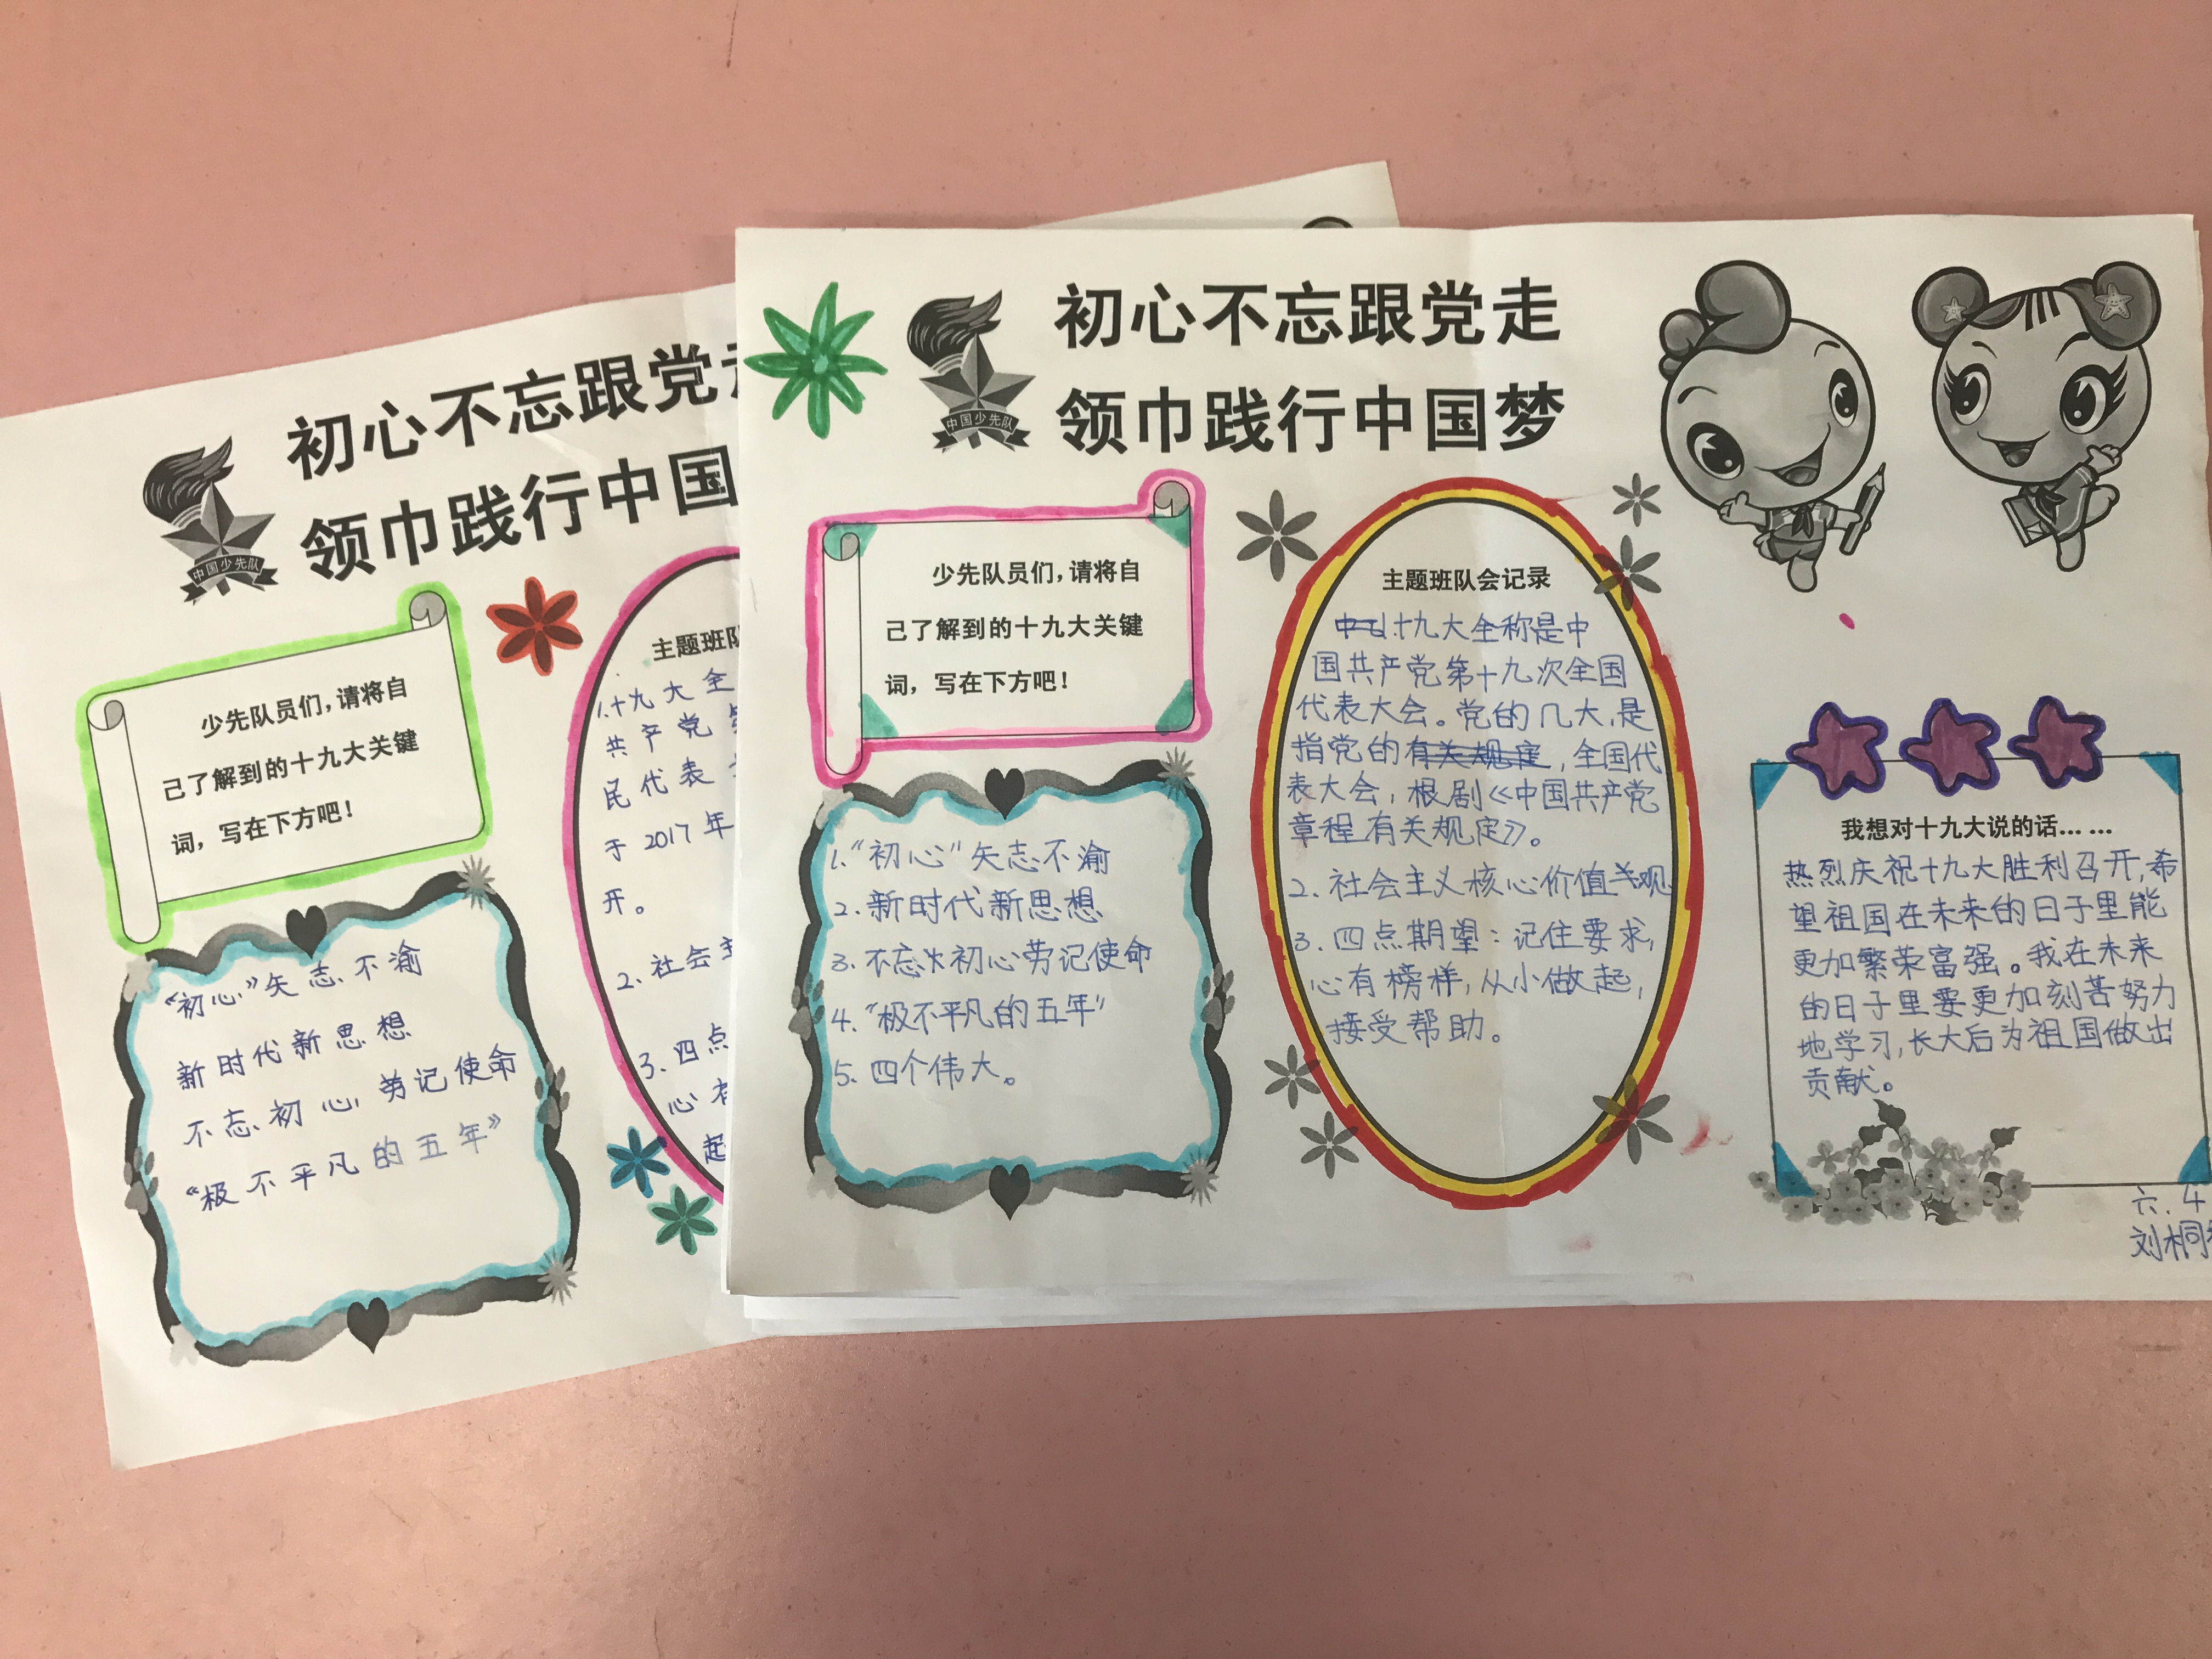 初心不忘跟党
领巾践行中国
中国少先队
少先队员们，请将自
己了解到的十九大关键
词，写在下方吧！
“初心”矢志不渝
新时代新思想
不忘初心，劳记使命
“极不平凡的五年”
主题班队
1.十九大全
共产党
民代表
于2017年
开。
2.社会主
3.四点
心有
起
初心不忘跟党走
领巾践行中国梦
中国少先队
少先队员们，请将自
己了解到的十九大关键
词，写在下方吧！
1.“初心”矢志不渝
2.新时代新思想
3.不忘初心劳记使命
4.“极不平凡的五年”
5.四个伟大。
主题班队会记录
1.十九大全称是中
国共产党第十九次全国
代表大会。党的几大，是
指党的有关规定，全国代
表大会，根剧《中国共产党
章程有关规定》。
2.社会主义核心价值观
3.四点期望：记住要求，
心有榜样，从小做起，
接受帮助。
我想对十九大说的话……
热烈庆祝十九大胜利召开，希
望祖国在未来的日子里能
更加繁荣富强。我在未来
的日子里要更加刻苦努力
地学习，长大后为祖国做出
贡献。
六.4
刘桐